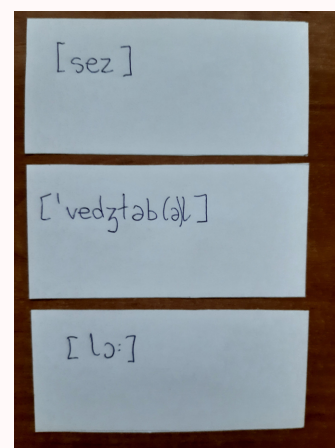 [sez]
['vedʒtəb(ə)l]
[lɔ:]